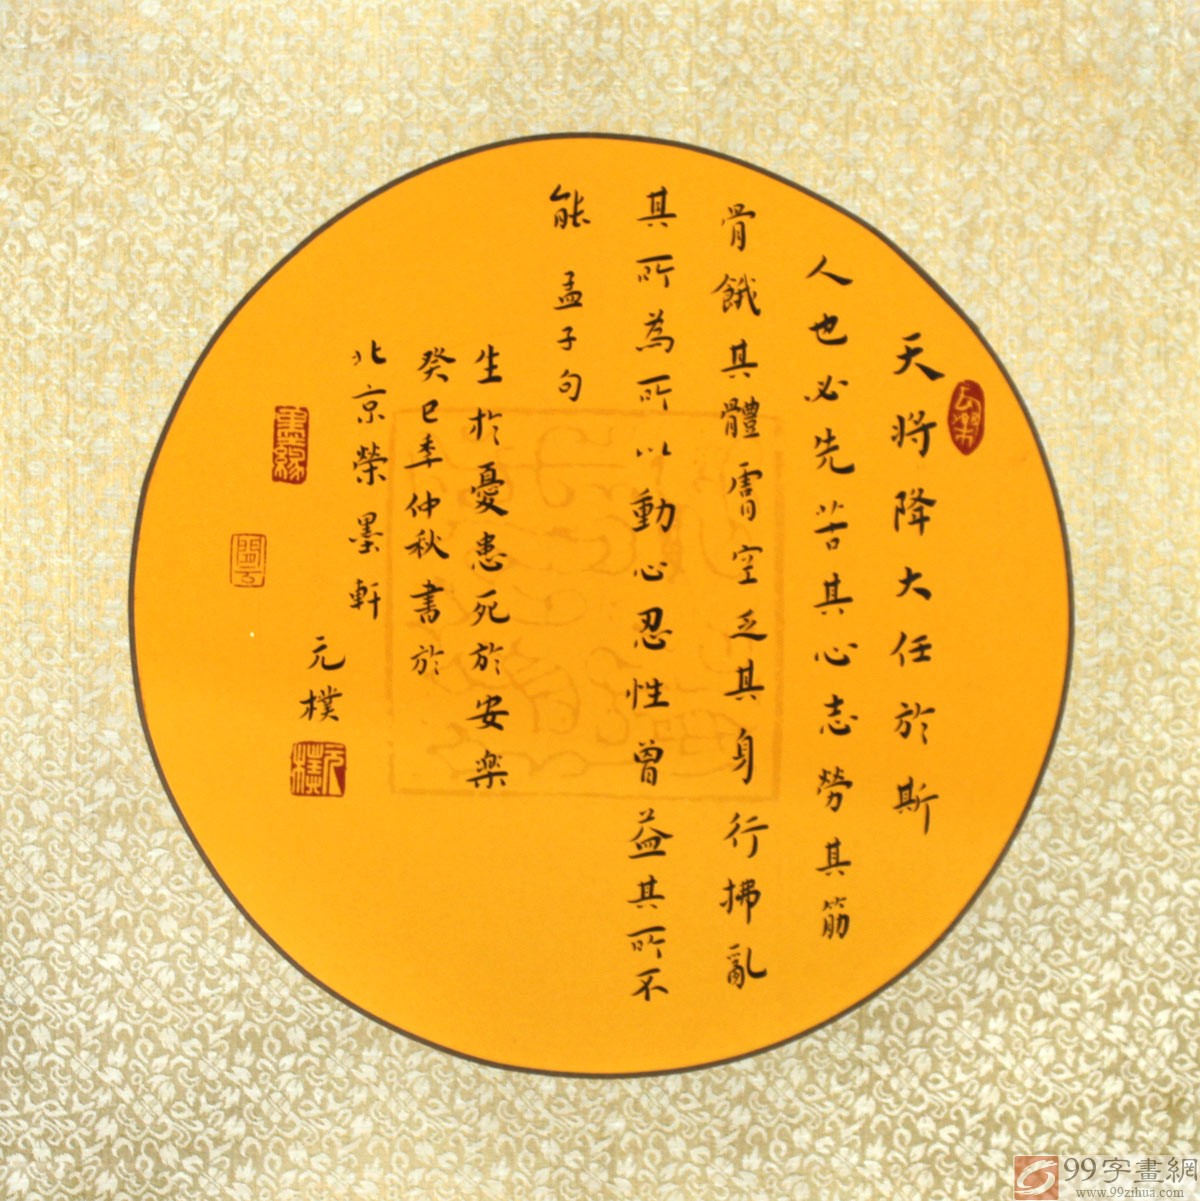 天將降大任於斯
人也必先苦其心志勞其筋
骨餓其體膚空乏其身行拂亂
其所為所以動心忍性曾益其所不
能 孟子句
生於憂患死於安樂
癸巳季仲秋書於
北京榮墨軒
元樸
墨緣
元樸
99字畫網
www.99zihua.com